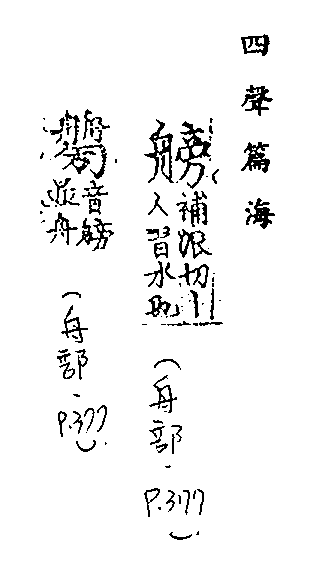 四聲篇海
艕
補浪切丨
人習水也
(舟部.P.377).
音艕
並舟
(舟部.P.377).